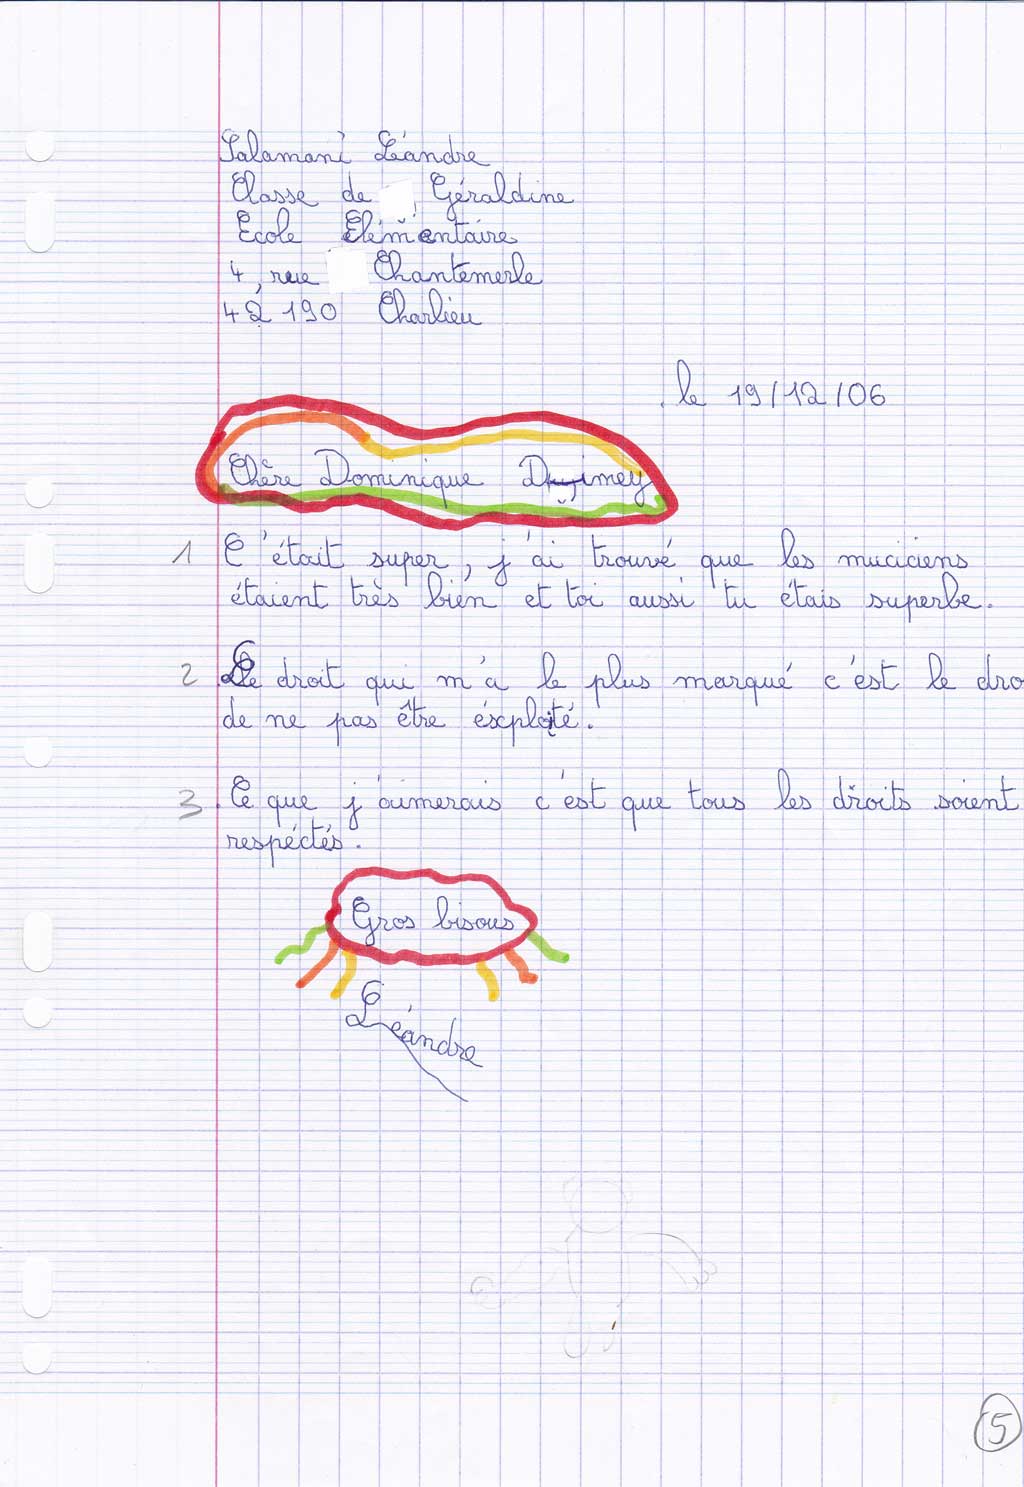 Salamani Léandre
Classe de Géraldine
Ecole Elémentaire
4, rue Chantemerle
42190 Charlieu
le 19/12/06
Chère Dominique Dimey
1 C'était super, j'ai trouvé que les muciciens
étaient très bien et toi aussi tu étais superbe.
2 Le droit qui m'a le plus marqué c'est le dro
de ne pas être éxploité.
3 Ce que j'aimerais c'est que tous les droits soient
respéctés.
Gros bisous
Léandre
5